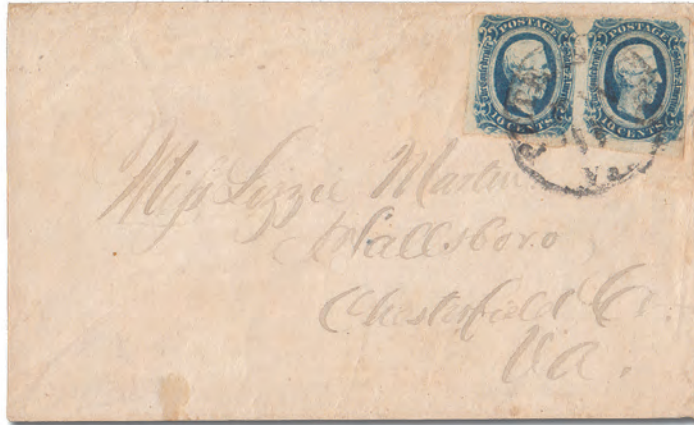 POSTAGE POSTAGE
10 CENTS 10 CENTS
Va.
Miss Lizzie Martin
Hallsboro
Chesterfield Co.
Va.